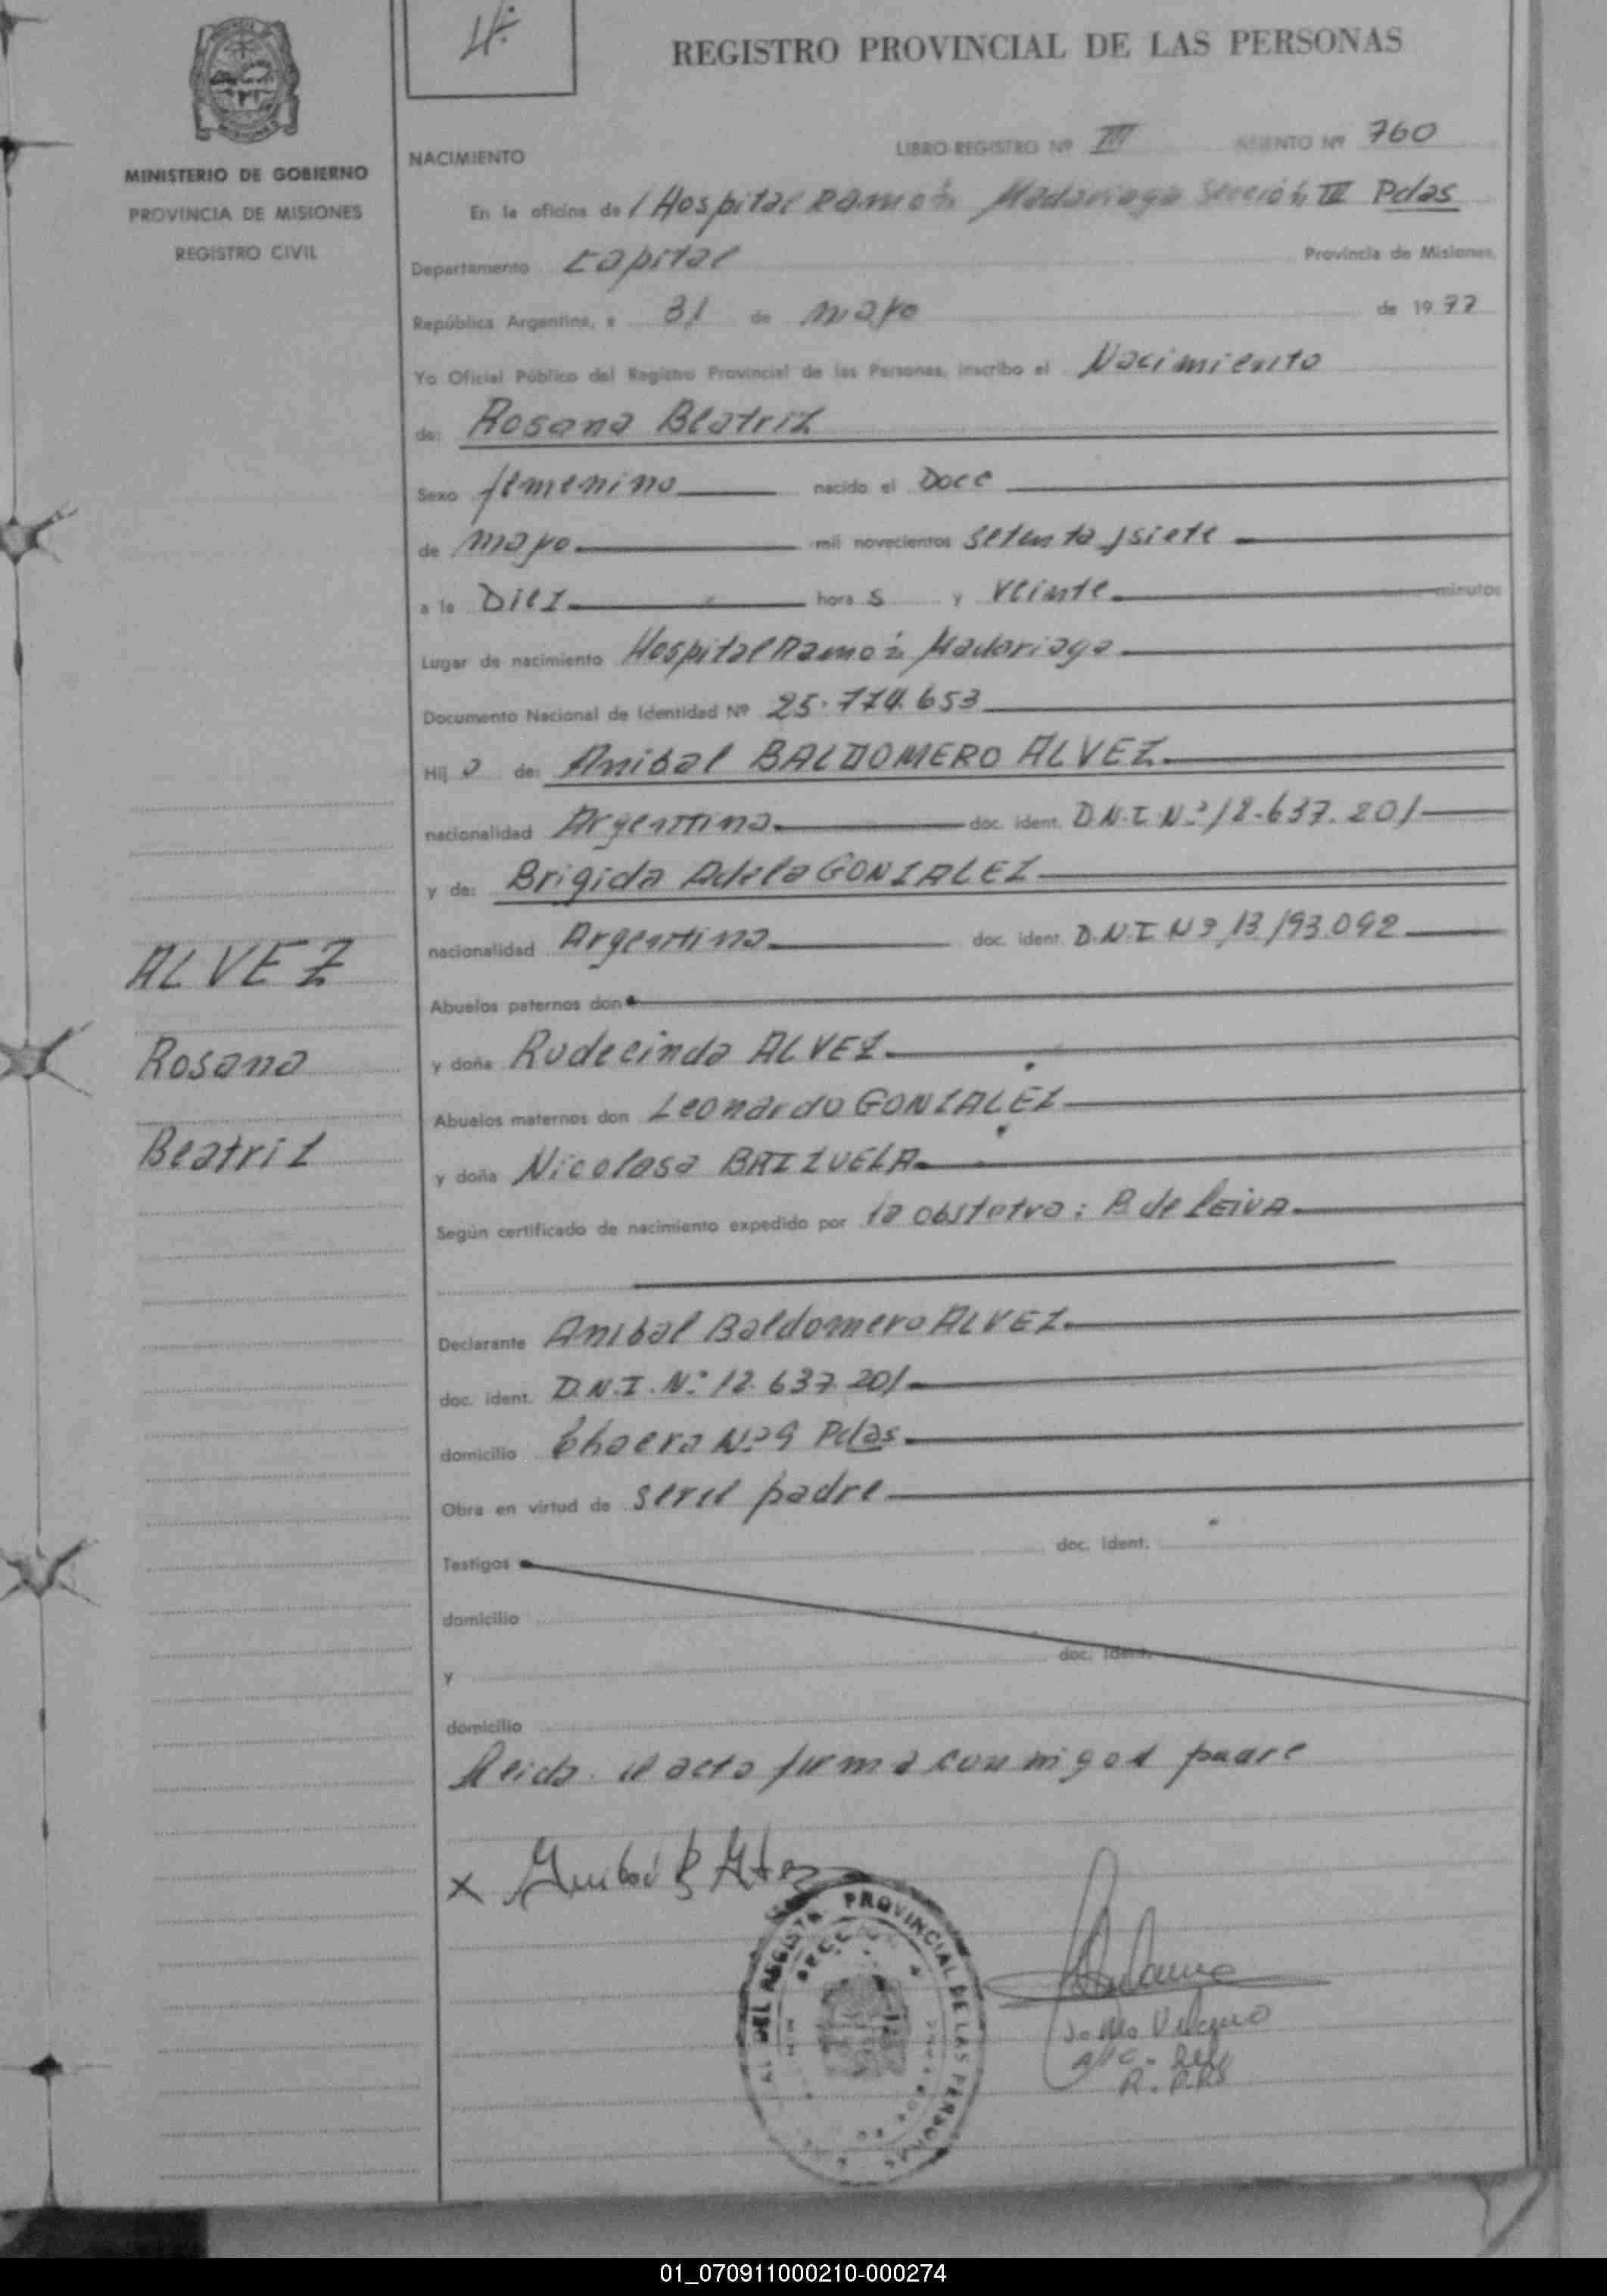 4.
REGISTRO PROVINCIAL DE LAS PERSONAS
MINISTERIO DE GOBIERNO
PROVINCIA DE MISIONES
REGISTRO CIVIL
NACIMIENTO
LIBRO-REGISTRO Nº III ASIENTO Nº 760
En la oficina del Hospital Ramón Madariaga Sección III Pdas
Departamento Capital Provincia de Misiones,
República Argentina, a 31 de mayo de 1977
Yo Oficial Público del Registro Provincial de las Personas, inscribo el Nacimiento
de: Rosana Beatriz
Sexo femenino nacido el Doce
de mayo mil novecientos setenta y siete
a la Diez hora s y veinte minutos
Lugar de nacimiento Hospital Ramón Madariaga
Documento Nacional de Identidad Nº 25.774.653
Hij a de: Anibal BALDOMERO ALVEZ
nacionalidad Argentina doc. ident. D.N.I. Nº 12.637.201
y de: Brigida Adela GONZALEZ
nacionalidad Argentina doc. ident. D.N.I Nº 13.193.092
Abuelos paternos don
y doña Rudecinda ALVEZ
Abuelos maternos don Leonardo GONZALEZ
y doña Nicolasa BAIZUELA
Según certificado de nacimiento expedido por la obstetra: B. de LEIVA
Declarante Anibal Baldomero ALVEZ
doc. ident. D.N.I. Nº 12.637.201
domicilio Chacra Nº 9 Pdas
Obra en virtud de ser el padre
Testigos doc. ident.
domicilio
y doc. ident.
domicilio
Leida el acta firma conmigo el padre
ALVEZ
Rosana
Beatriz
X Anibal B Alvez
DEL REGISTRO PROVINCIAL DE LAS PERSONAS
R.P.P.
01_070911000210-000274